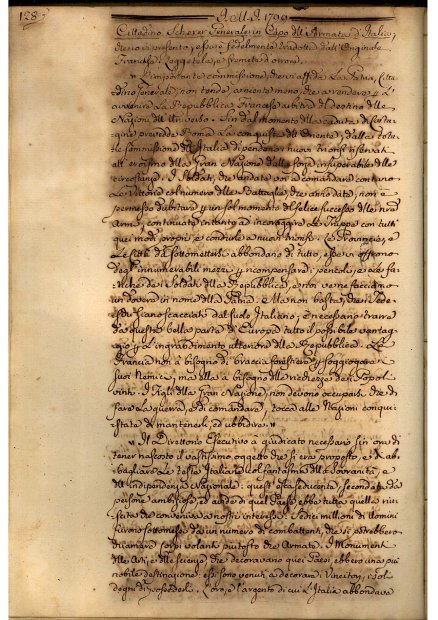 128.
A.M.D. 1799
Cittadino Scherer Generale in Capo dell'Armata d'Italia,
presento, essere fedelmente tradotta dall'Originale
Francese. Leggetela, e fremete d'orrore.
" L'importante commissione, che vi affida La Patria, Citta-
dino Generale, non tende a meno, che a rendere p. L'
avvenire La Repubblica Francese arbitra del destino delle
Nazioni dell'Universo. Sin dal momento della caduta di Carta-
gine prevedde Roma La conquista dell'Oriente, dalla tota-
le sommissione dell'Italia dipendono i nuovi trionfi riservati
all'eroismo della Gran Nazione dalla forza insuperabile delle
circostanze. I Soldati, che andate voi a comandare contano
Le Vittorie col numero delle Battaglie, che anno date, non è
permesso dubitare p. un sol momento del felice successo delle nostre
Armi, continuate intanto ad incoraggire Le Truppe con tutti
quei modi proprj a condurle a nuovi trionfi. Le Provincie, e
Le Città da sottomettersi abbondano di tutto, esse vi offrono
degl'innumerabili mezzi p. ricompensare i pericoli, e le fa-
tiche de' Soldati della Repubblica, e noi ve ne facciamo
un dovere in nome della Patria. Ma non basta, che i Tede-
schi siano scacciati dal suolo Italiano, è necessario trarre
da questa bella parte di Europa tutto il possibile vantag-
gio p. L'ingrandimento ulteriore della Repubblica. La
Francia non à bisogno di braccia forestiere p. soggiogare i
suoi Nemici, ma ella à bisogno delle ricchezze de' Popoli
vinti. I Figli della Gran Nazione non devono occuparsi che di
fare La guerra, e di comandare, tocca alle Nazioni conqui-
state di mantenerli, ed ubbidire. "
" Il Direttorio Esecutivo à giudicato necessario sin ora di
tener nascosto il vastissimo oggetto, che si era proposto, e di ab-
bagliare Le teste Italiane col fantasma della Sovranità, e
dell'Indipendenza Nazionale: quest'esca seducente, secondata da
persone ambiziose, ed avide di quel Paese ebbe tutta quella riu-
scita che conveniva a' nostri interessi. Sedici milioni di Uomini
furono sottomessi da un numero di combattenti, che si potrebbero
chiamare Corpi volanti piutosto che Armate. I Monumenti
delle Arti, e delle scienze, che decoravano quei Paesi ebbero una più
nobile destinazione: essi sono venuti a decorare i Vincitori, i soli
degni di possederli. L'oro, e l'argento di cui L'Italia abbondava